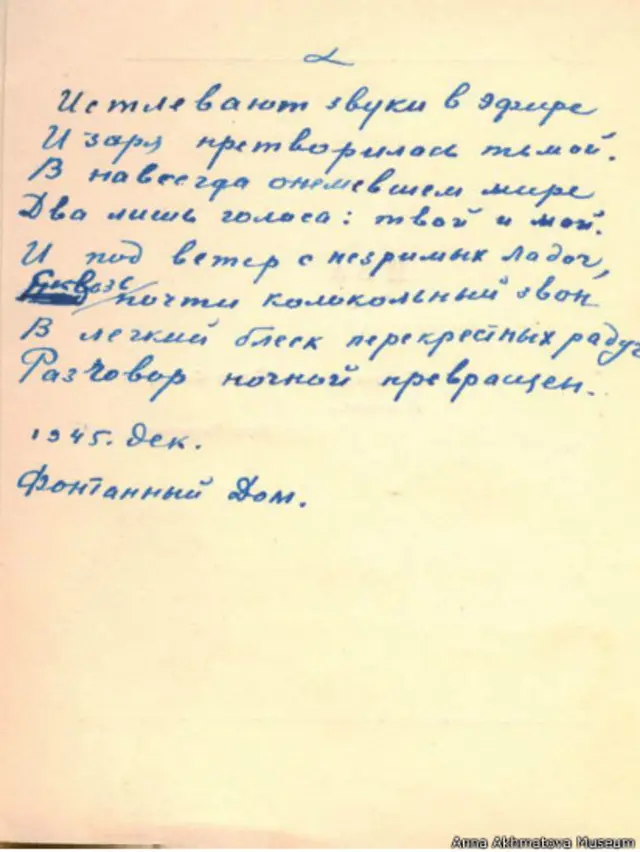 2
Истлевают звуки в эфире
И заря претворилась тьмой.
В навсегда онемевшем мире
Два лишь голоса: твой и мой.
И под ветер с незримых Ладог,
Сквозь
почти колокольный звон
В легкий блеск перекрестных радуг
Разговор ночной превращен.
1945. дек.
Фонтанный Дом.
Anna Akhmatova Museum